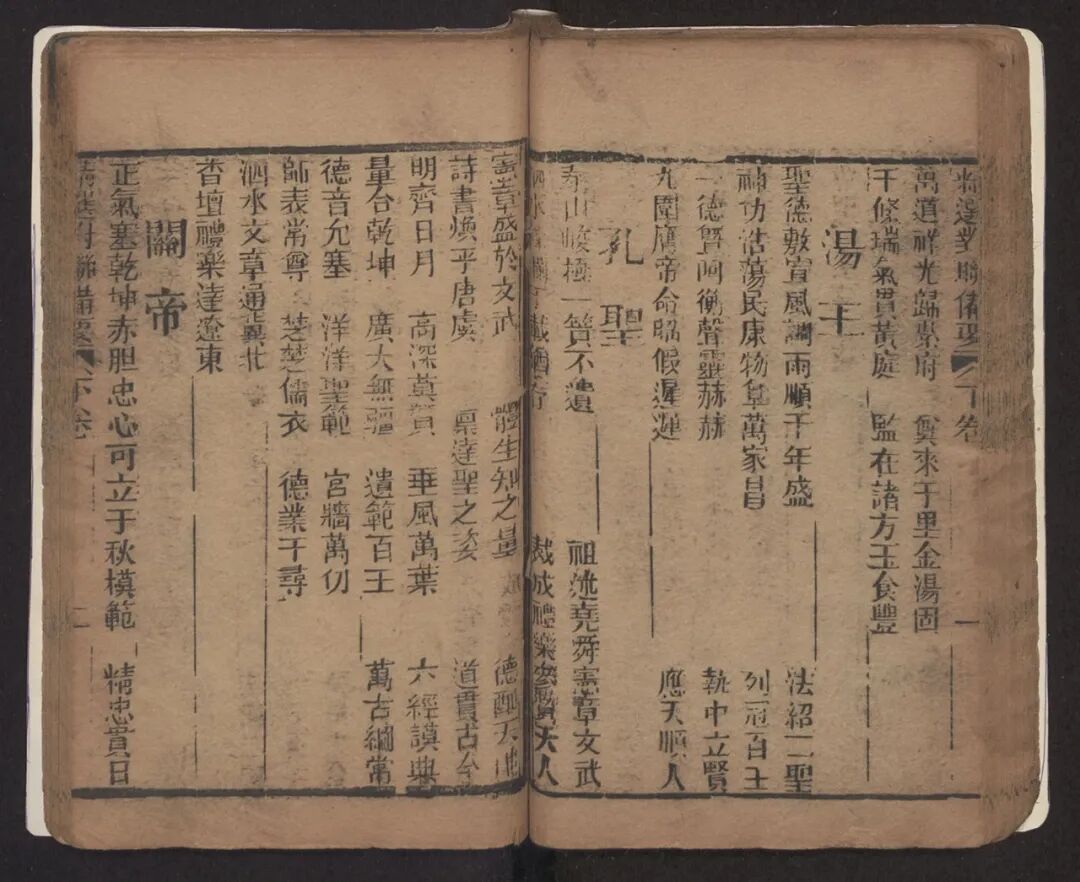 精選對聯備要 下卷 一
萬道祥光歸紫府 雲來千里金湯固
千條瑞氣貫黃庭 監在諸方玉食豐
湯王
聖德敷宣風調雨順千年盛 法紹二聖
神功浩蕩民康物阜萬家昌 列冠百王
一德賢阿衡聲靈赫赫 執中立賢
九圍膺帝命昭假遲遲 應天順人
孔聖
泰山峻極一簣不遺 祖述堯舜憲章文武
泗水 裁成禮樂 天人
憲章盛於文武 體生知之量 德配天地
詩書煥乎唐虞 稟達聖之姿 道貫古今
明齊日月 高深莫贊 垂風萬葉 六經謨典
量合乾坤 廣大無疆 遺範百王 萬古綱常
德音允塞 洋洋聖範 宮牆萬仞
師表常尊 楚楚儒衣 德業千尋
泗水文章通冀北
杏壇禮樂達遼東
關帝
正氣塞乾坤赤胆忠心可立千秋模範 精忠貫日
對聯備要 下卷 二